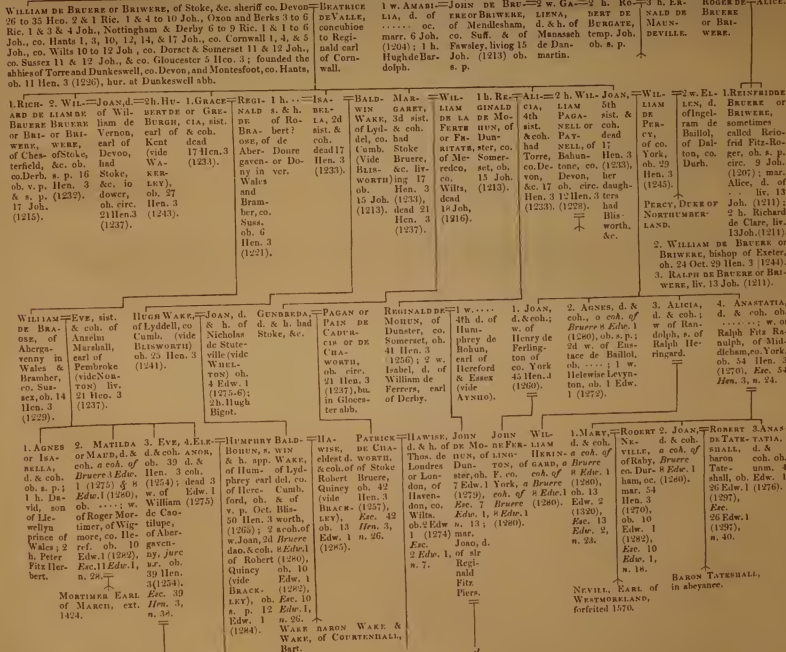 WILLIAM DE BRUERE OR BRIWERE, of Stoke, &c. sheriff co. Devon
26 to 35 Hen. 2 & 1 Ric. 1 & 4 to 10 Joh., Oxon and Berks 3 to 6
Ric. 1 & 3 & 4 Joh., Nottingham & Derby 6 to 9 Ric. 1 & 1 to 6
Joh., co. Hants 1, 3, 10, 12, 14, & 17 Joh., co. Cornwall 1, 4, & 5
Joh., co. Wilts 10 to 12 Joh., co. Dorset & Somerset 11 & 12 Joh.,
co. Sussex 11 & 12 Joh., & co. Gloucester 5 Hen. 3; founded the
abbies of Torre and Dunkeswell, co. Devon, and Montesfoot, co. Hants,
ob. 11 Hen. 3 (1226), bur. at Dunkeswell abb.
BEATRICE
DE VALLE,
concubine
to Regi-
nald earl
of Corn-
wall.
1 w. AMABI-
LIA, d. of
..... oc.
marr. 6 Joh.
(1204); 1 h.
Hugh de Bar-
dolph.
JOHN DE BRU-
ERE OR BRIWERE,
of Mendlesham,
co. Suff. & of
Fawsley, living 15
Joh. (1213) ob.
s. p.
2 w. GA-
LIENA,
d. & h. of
Manasseh
de Dan-
martin.
2 h. RO-
BERT DE
BURGATE,
temp. Joh.
ob. s. p.
3 h. ER-
NALD DE
MAUN-
DEVILLE.
ROGER DE
BRUERE
OR BRI-
WERE.
ALICE.
1. RICH-
ARD DE
BRUERE
OR BRI-
WERE,
of Ches-
terfield,
co. Derb.
ob. v. p.
& s. p.
17 Joh.
(1215).
2. WIL-
LIAM DE
BRUERE
OR BRI-
WERE,
of Stoke,
&c. ob.
s. p. 16
Hen. 3
(1232).
JOAN, d.
of Wil-
liam de
Vernon,
earl of
Devon,
had
Stoke,
&c. in
dower,
ob. circ.
21 Hen. 3
(1237).
2 h. HU-
BERT DE
BURGH,
earl of
Kent
(vide
WA-
KER-
LEY)
ob. 27
Hen. 3
(1243).
1. GRACE
OR GRE-
CIA, sist.
& coh.
dead
17 Hen. 3
(1233).
REGI-
NALD
BRA-
OSE, of
Aber-
gaven-
ny in
Wales
and
Bram-
ber, co.
Suss.
ob. 6
Hen. 3
(1221).
1 h. ...
s. & h.
of Ro-
bert?
de
Doure
or Do-
ver.
ISA-
BEL-
LA, 2d
sist. &
coh.
dead 17
Hen. 3
(1233).
BALD-
WIN
WAKE,
of Lyd-
del, co.
Cumb.
(Vide
BLIS-
WORTH)
ob.
15 Joh.
(1213).
MAR-
GARET,
3d sist.
& coh.
had
Stoke
Bruere,
&c. liv-
ing 17
Hen. 3
(1233),
dead 21
Hen. 3
(1237).
WIL-
LIAM
DE LA
FERTE
OR DE
FE-
RITATE,
of Me-
redco,
co.
Wilts,
dead
18 Joh,
(1216).
1 h. RE-
GINALD
DE MO-
HUN, of
Dun-
ster, co.
Somer-
set, ob.
15 Joh.
(1213).
ALI-
CIA,
4th
sist. &
coh. of
had
Torre,
co. De-
von,
&c. 17
Hen. 3
(1233)
2 h. WIL-
LIAM
PAGA-
NELL OR
PAT-
NELL, of
Bahun-
tone, co.
Devon,
ob. circ.
12 Hen. 3
(1228).
JOAN
5th
sist. &
coh.
dead
17
Hen. 3
(1233),
her
daugh-
ters
had
Blis-
worth,
&c.
WIL-
LIAM
DE
PER-
CY,
of co.
York,
ob. 29
Hen. 3
(1245).
PERCY, DUKE OF
NORTHUMBER-
LAND.
2 w. EL-
LEN, d.
of Ingel-
ram de
Baillol,
of Dal-
ton, co.
Durh.
1. REINFRID DE
BRUERE OR
BRIWERE,
sometimes
called Rein-
frid Fitz-Ro-
ger, oh. s. p.
circ. 9 Joh.
(1207); mar.
Alice, d. of
.... liv. 13
Joh. (1211);
2 h. Richard
de Clare, liv.
13 Joh. (1211).
2. WILLIAM DE BRUERE OR
BRIWERE, bishop of Exeter,
oh. 24 Oct. 29 Hen. 3 (1244).
3. RALPH DE BRUERE OR BRI-
WERE, liv. 13 Joh. (1211).
WILLIAM
DE BRA-
OSE, of
Aberga-
venny in
Wales &
Bramber,
co. Sus-
sex, ob. 14
Hen. 3
(1229).
EVE, sist.
& coh. of
Anselm
Marshall,
earl of
Pembroke
(vide NOR-
TON) liv.
21 Hen. 3
(1237).
HUGH WAKE,
of Lyddell, co
Cumb. (vide
BLISWORTH)
oh. 25 Hen. 3
(1241).
JOAN, d.
& h. of
Nicholas
de Stute-
ville (vide
WHEL-
TON) ob.
4 Edw. 1
(1275-6);
2 h. Hugh
Bigot.
GUNDREDA,
d. & h. had
Stoke, &c.
PAGAN OR
PAIN DE
CADUR-
CIS OR DE
CHA-
WORTH,
ob. circ.
21 Hen. 3
(1237), bu.
in Glouces-
ter abb.
REGINALD DE
MOHUN, of
Dunster, co.
Somerset, ob.
41 Hen. 3
(1256); 2 w.
Isabel, d. of
William de
Ferrers, earl
of Derby.
1 w. ....
4th d. of
Hum-
phrey de
Bohun,
earl of
Hereford
& Essex
(vide
AYNHO).
1. JOAN,
d. & coh.;
w. of
Henry de
Ferling-
ton of
co. York
45 Hen. 3
(1260).
2. AGNES, d. &
coh., a coh. of
Bruere 8 Edw. 1
(1280), ob. s. p.;
2d w. of Eus-
tace de Baillol,
ob. ....; 1 w.
Helewise Levyn-
ton, ob. 1 Edw.
1 (1272).
3. ALICIA,
d. & coh.;
w. of Ran-
dolph, s. of
Ralph He-
ringard.
4. ANASTATIA,
d. & coh. ob.
......; w. of
Ralph Fitz Ra-
nulph, of Mid-
dleham, co. York.
ob. 54 Hen. 3
(1270), Esc. 54
Hen. 3, n. 24.
1. AGNES
OR ISA-
BELLA,
d. & coh.
ob. s. p.;
1 h. Da-
vid, son
of Lle-
wellyn
prince of
Wales; 2
h. Peter
Fitz Her-
bert.
2. MATILDA
OR MAUD, d. &
coh. a coh. of
Bruere 4 Edw.
1 (1275) & 8
Edw. 1 (1280),
ob. ....; w.
of Roger Mor-
timer, of Wig-
more, co. He-
ref. ob. 10
Edw. 1 (1282),
Esc. 11 Edw. 1,
n. 28.
MORTIMER EARL
OF MARCH, ext.
1424.
3. EVE,
d. & coh.
ob. 39
Hen. 3
(1254);
w. of
William
de Can-
tilupe,
of Aber-
gaven-
ny, jure
ux. ob.
39 Hen.
3 (1254).
Esc. 39
Hen. 3,
n. 38.
4. ELE-
ANOR,
d. &
coh.
dead 3
Edw. 1
(1275)
HUMPHREY
BOHUN, s.
& h. app.
of Hum-
phrey earl
of Here-
ford, ob.
v. p. Oct.
50 Hen. 3
(1265);
w. Joan, 2d
dau. & coh.
of Robert
Quincy
(vide
BRACK-
LEY), ob.
s. p. 12
Edw. 1
(1284).
BALD-
WIN
WAKE,
of Lyd-
del, co.
Cumb.
& of
Blis-
worth,
2 a coh. of
Bruere
8 Edw. 1
(1280),
ob. 10
Edw. 1
(1282),
Esc. 10
Edw. 1,
n. 26.
WAKE BARON WAKE &
WAKE, of COURTENHALL,
Bart.
HA-
WISE,
eldest d.
& coh. of
Robert
Quincy
(vide
BRACK-
LEY),
ob. 13
Edw. 1
(1285).
PATRICK
DE CHA-
WORTH,
of Stoke
Bruere,
ob. 42
Hen. 3
(1257),
Esc. 42
Hen. 3,
n. 26.
HAWISE,
d. & h. of
Thos. de
Londres
or Lon-
don, of
Haven-
don, co.
Wilts.
ob. 2 Edw.
1 (1274)
Esc.
2 Edw. 1,
n. 7.
JOHN
DE MO-
HUN, of
Dun-
ster, ob.
7 Edw. 1
(1279),
Esc. 7
Edw. 1,
n. 13;
mar.
Joan, d.
of sir
Regi-
nald
Fitz
Piers.
JOHN
DE FER-
LING-
TON, of
F. co.
York, a
coh. of
Bruere
8 Edw. 1
(1280).
WIL-
LIAM
HERIN-
GARD, a
coh. of
Bruere
8 Edw. 1
(1280).
1. MARY,
d. & coh.
a coh. of
Bruere
8 Edw. 1
(1280),
ob. 13
Edw. 2
(1320),
Esc. 13
Edw. 2,
n. 23.
ROBERT
NE-
VILLE,
of Raby,
co. Dur-
ham, oc.
mar. 54
Hen. 3
(1270),
ob. 10
Edw. 1
(1282),
Esc. 10
Edw. 1,
n. 18.
NEVILL, EARL OF
WESTMORELAND,
forfeited 1570.
2. JOAN,
d. & coh.
a coh. of
Bruere
8 Edw. 1
(1280).
ROBERT
DE TATE-
SHALL,
baron
Tate-
shall, ob.
26 Edw. 1
(1297),
Esc.
26 Edw. 1
(1297),
n. 40.
BARON TATESHALL,
in abeyance.
3. ANAS-
TATIA,
d. &
coh. ob.
unm. 4
Edw. 1
(1276).